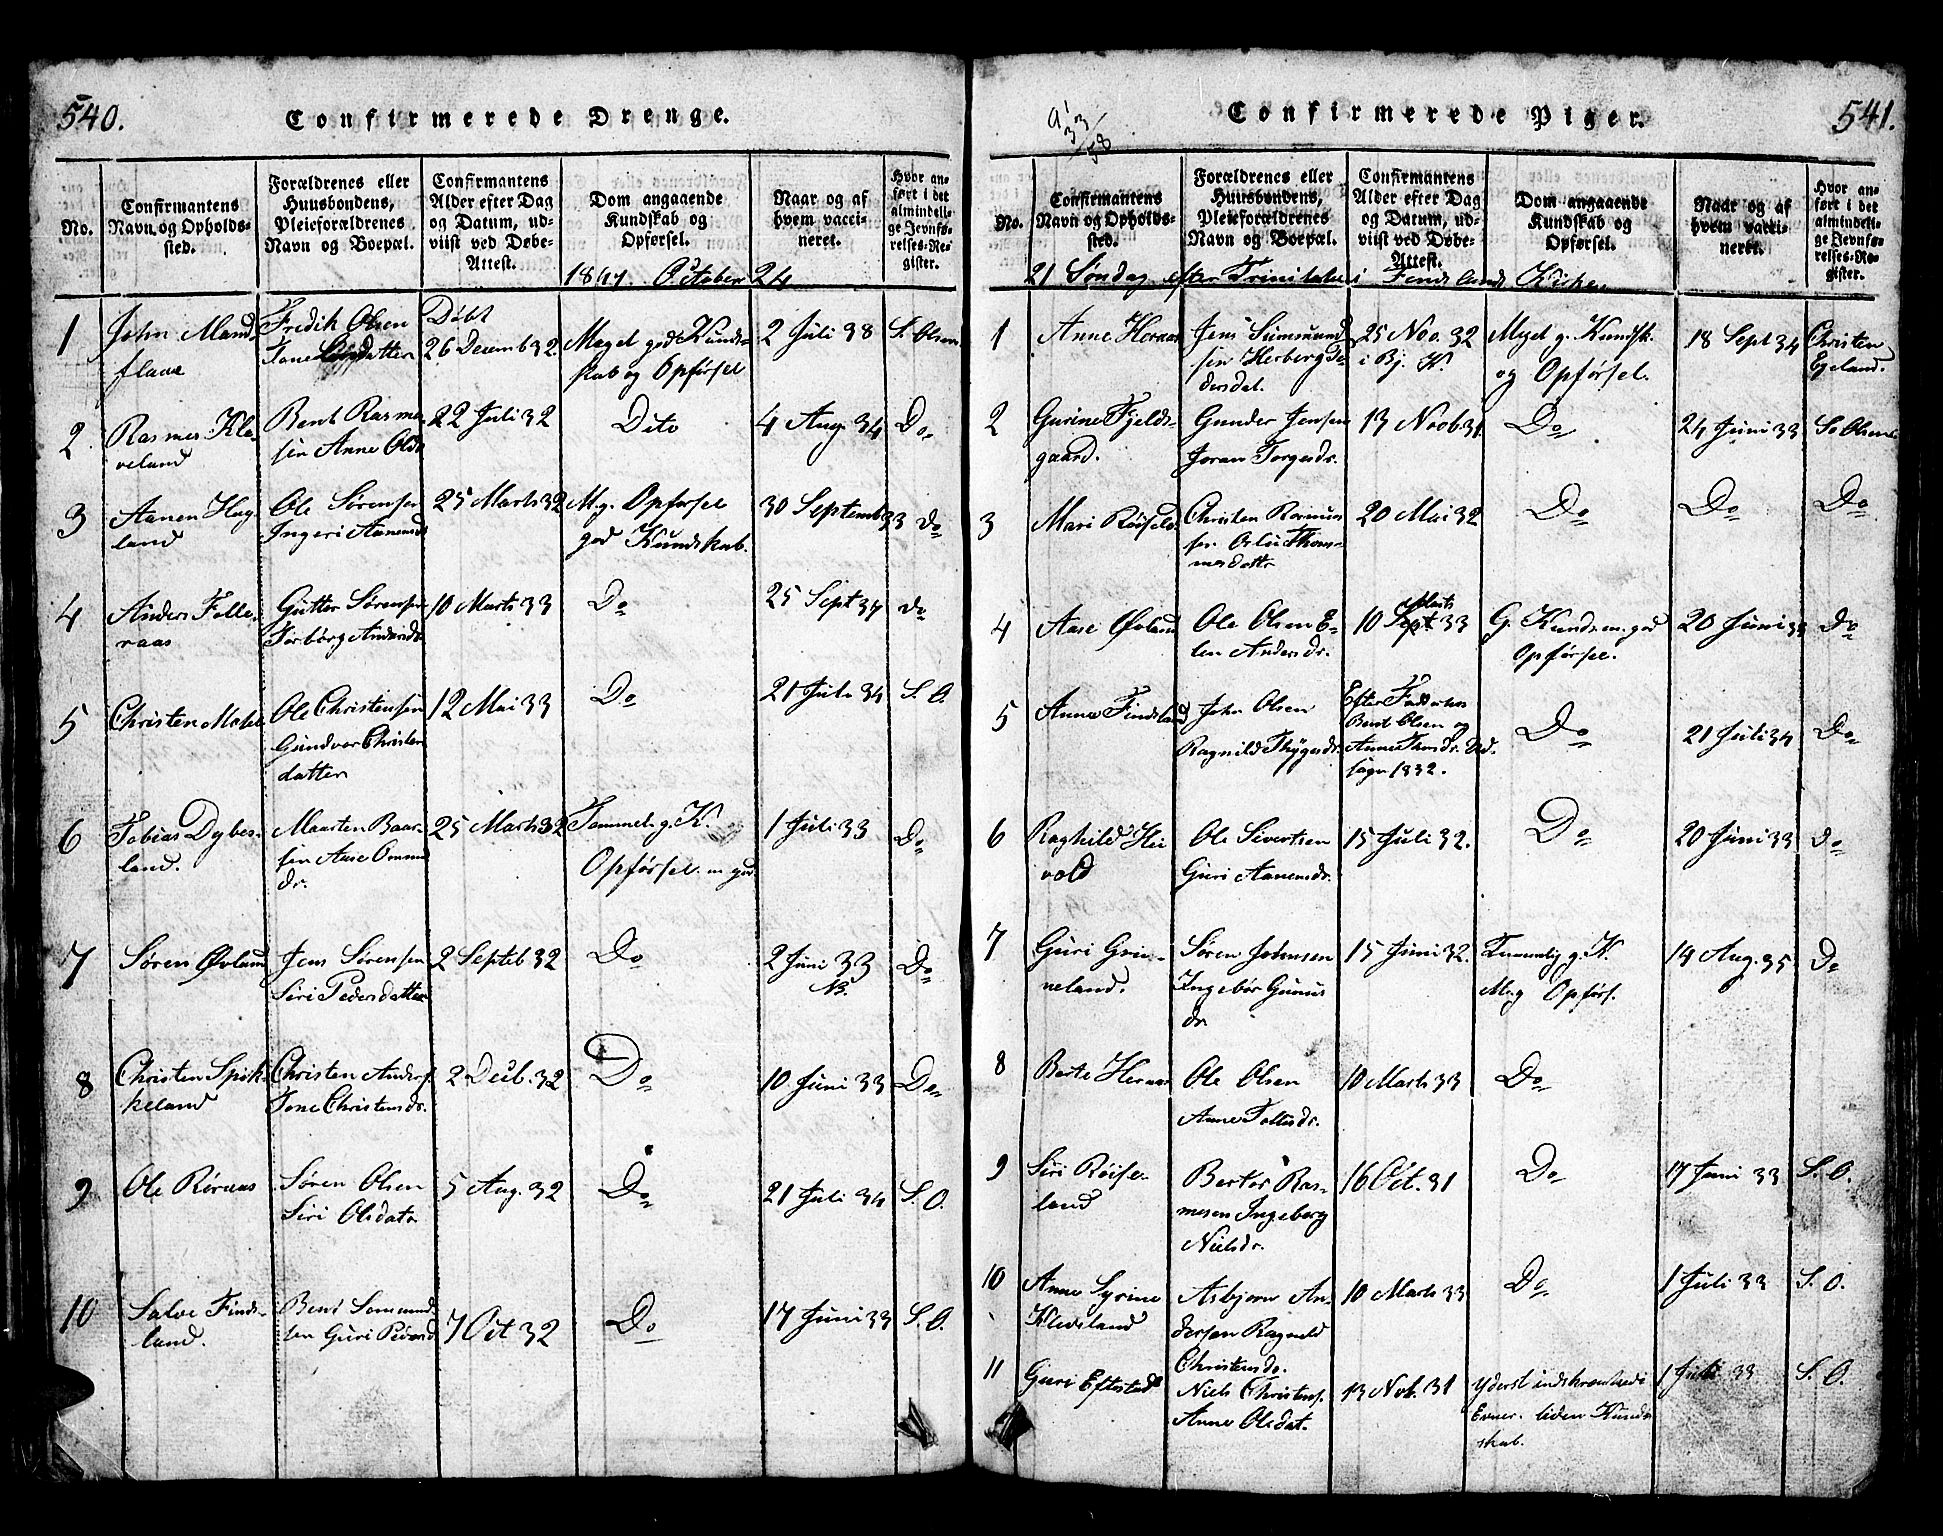 540.
Confirmerede Drenge.
No.
Confirmantens
Navn og Opholds-
sted.
Forældrenes eller
Huusbondens,
Pleieforældrenes
Navn og Boepæl.
Confirmantens
Alder efter Dag
og Datum, ud-
viist ved Døbe-
Attest.
Dom angaaende
Kundskab og
Opførsel.
Naar og af
hvem vacci-
neret.
Hvor an-
ført i det
almindeli-
ge Jevnfø-
relses-Re-
gister.
1847. October 24
1
John Mand-
flaae
Fredik Olsen
Tone
Døbt
26 Decemb 32
Meget god Kund-
skab og Opførsel
2 Juli 38
S. Olsen
2
Rasmus Kle-
veland
Bent Rasme-
sen Anne Olsd
22 Juli 32
Dito
4 Aug. 34
Do
3
Aanen Hug-
land
Ole Sørensen
Ingeri Aanensd
25 Marts 32
M.g. Opførsel
god Kundskab.
30 Septemb 33
Do
4
Anders Felle-
raas
Gutter Sørensen
Torborg Andersdr
10 Marts 33
Do
25 Sept 34
Do
5
Christen
Ole Christensen
Gundvor Christen
datter
12 Mai 33
Do
21 Juli 34
S. O.
6
Tobias Dybes-
land.
Maarten Baar-
sen Aase Omund
dr.
25 Marts 32
Temmel. g. K.
Opførsel m. god
1 Juli 33
Do
7
Søren Øvland
Jens Sørensen
Siri Pedersdatter
2 Septeb 32
Do
2 Juni 33
NB.
Do
8
Christen Spik-
keland
Christen Anders.
Tone Christensdr.
2 Decb. 32
Do
10 Juni 33
Do
9
Ole Røraas
Søren Olsen
Siri Olsdatr
5 Aug. 32
Do
21 Juli 34
S. O.
10
Salve Finds-
land.
Bent Somund-
sen Guri Pedersd
7 Oct 32
Do
17 Juni 33
S. O.
541.
Confirmerede Piger.
33/58
No.
Confirmantens
Navn og Opholds-
sted.
Forældrenes eller
Huusbondens,
Pleieforældrenes
Navn og Boepæl.
Confirmantens
Alder efter Dag
og Datum, ud-
viist ved Døbe-
Attest.
Dom angaaende
Kundskab og
Opførsel.
Naar og af
hvem vacci-
neret.
Hvor an-
ført i det
almindeli-
ge Jevnfø-
relses-Re-
gister.
21 Søndag efter Trinitatis i Findslands Kirke
1
Anne Heraas
Jens Sumund
sen Herborg Pe-
dersdat.
25 Nov. 32
i Bj. K.
Meget g. Kundsk.
og Opførsel.
18 Sept 34
Christen
Egeland.
2
Gurine Fjelds-
gaard.
Gunder Jensen
Joran Torgersdr.
13 Novb 31.
Do
24 Juni 33
So Olsen
3
Mari Røiseld
Christen Rasmus
sen Thom-
mesdattr
20 Mai 32
Do
Do
Do
4
Aase Øvland
Ole Olsen E-
len Andersdr.
10 Sept Marts 33
G. Kunds m. god
Opførsel.
20 Juni 33
Do
5
Anna Findsland
John Olsen
Ragnild Thygesdr.
Efter Faddernes
Bent Olsen og
Anne
sagn 1832.
Do
21 Juli 34
Do
6
Raghild Hei
vold
Ole Sivertsen
Guri Aanensdr.
15 Juli 32.
Do
20 Juni 33
Do
7
Guri Grin-
neland.
Søren Johnsen
Ingebor Gunus
dr.
15 Juni 32.
Temmelig g. K.
M.g Opførs.
14 Aug. 35
Do
8
Berte Heraas
Ole Olsen
Anne Tollesdr.
10 Marts 33
Do
9
Siri Røise-
land
Bertor Ras-
mesen Ingeborg
Nielsdr.
16 Oct. 31
Do
17 Juni 33
S. O.
10
Anne Syrine
Kleveland
Asbjørn An-
dersen Ragnild
Christensdr.
10 Marts 33
Do
1 Juli 33
S. O.
11
Guri Eftestad
Niels Christens.
Anne Olsdat.
13 Nob. 31
Yderst indskrænkede
Evner. liden Kund-
skab.
1 Juli 33
S. O.